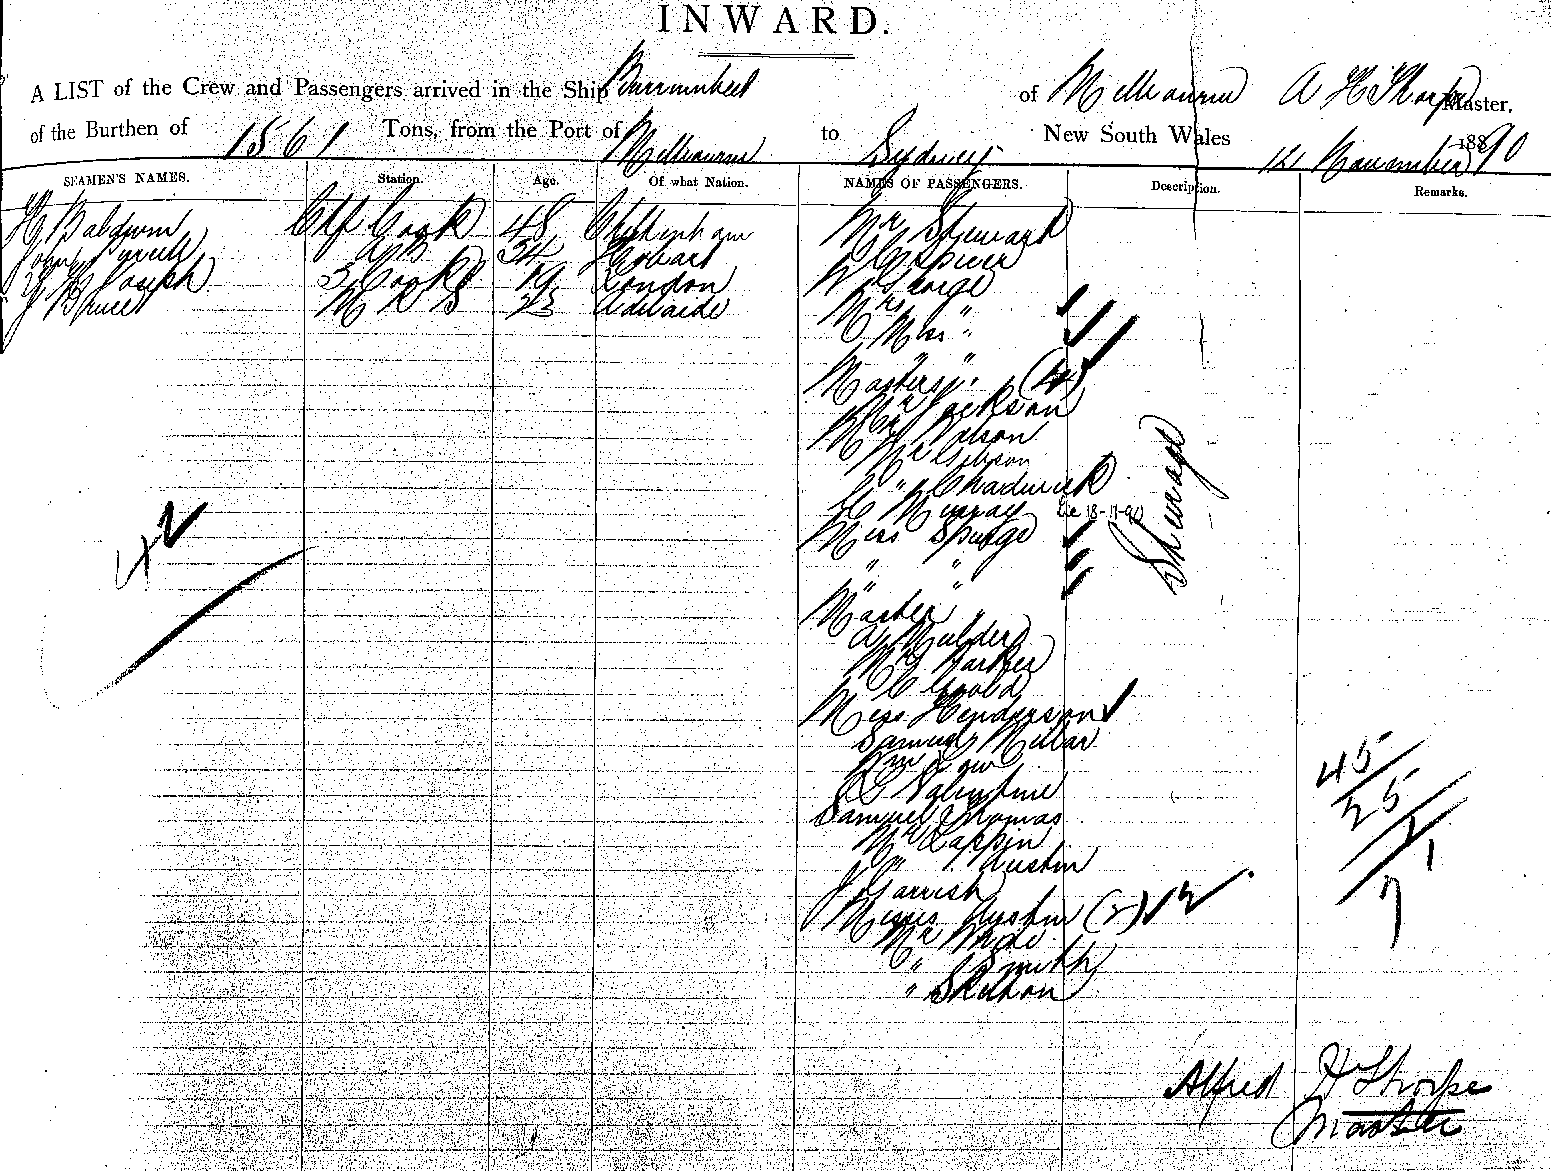 INWARD.
A LIST of the Crew and Passengers arrived in the Ship Burrumbeet of Melbourne A H Thorpe Master.
of the Burthen of 1561 Tons, from the Port of Melbourne to Sydney New South Wales 12 November 1890
SEAMEN'S NAMES. Station. Age. Of what Nation. NAMES OF PASSENGERS. Description. Remarks.
H Baldwin Chf Cook 48 Cheltenham
John AB 34 Hobart
Joseph 3 Cook 19 London
J Bruce M R S 23 Adelaide
Mr Steward
Spicer
George
Mrs "
Miss "
Masters " (4)
Mr Jackson
Watson
Mr Gibson
" Chadwick
Murray 18-11-90
Miss Spurge
" "
" "
Master "
A Mulder
Mrs Barker
C Gould
Miss Henderson
Samuel Millar
Wm Low
Valentine
Samuel Thomas
Mr Tappin
" Austin
J Parrish
Misses Austin (2) 2
Mr Hyde
" Smith
" Skelton
Steerage
42
45
25
1
7
Alfred H Thorpe
Master